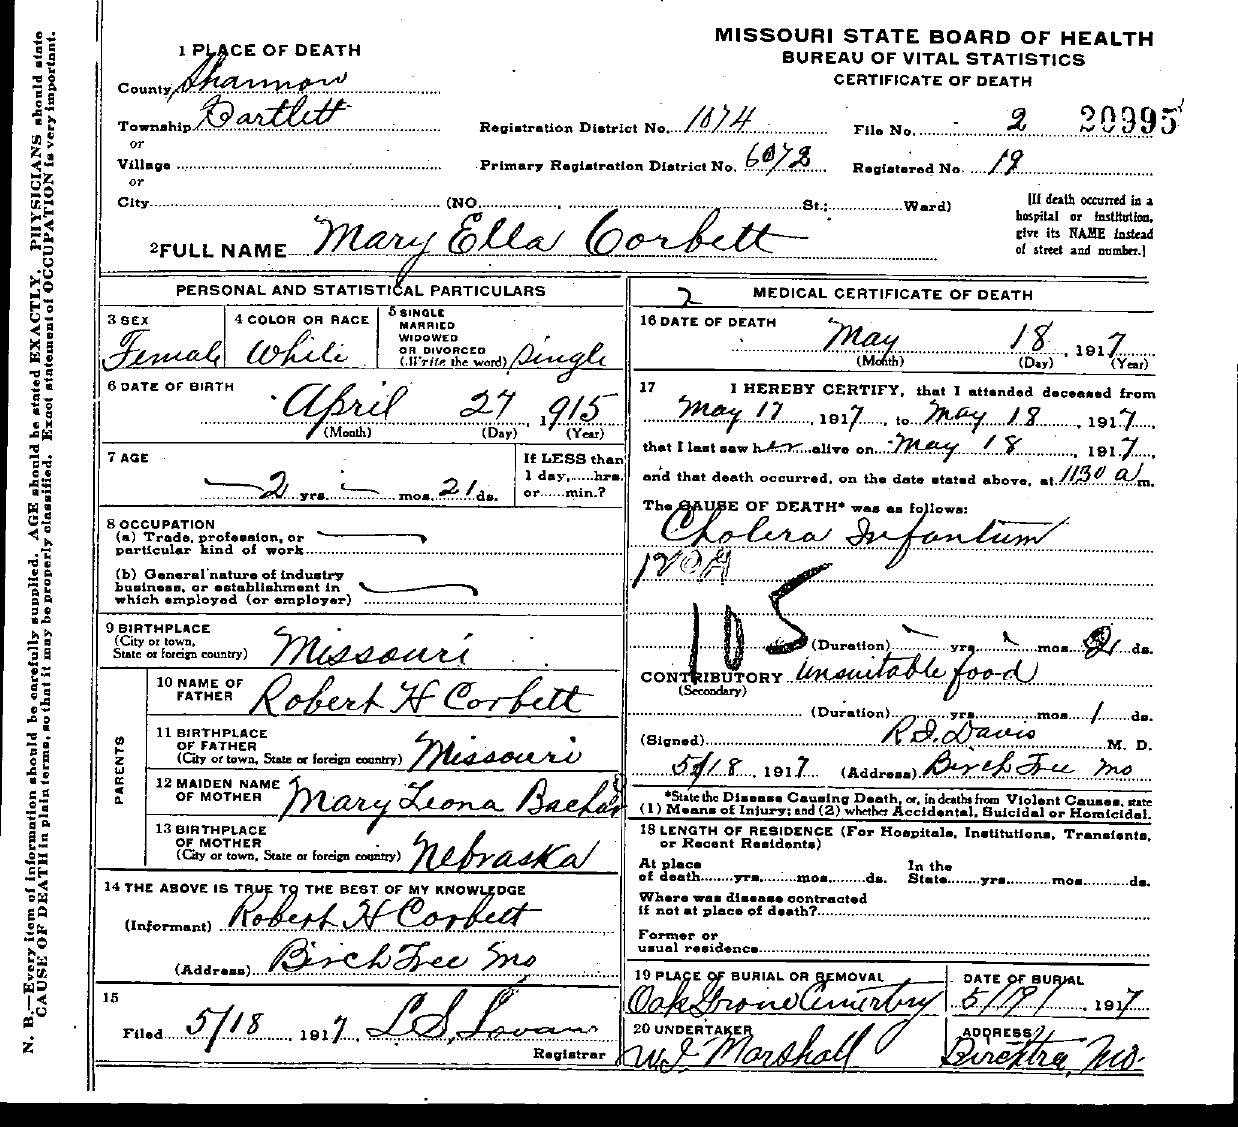 MISSOURI STATE BOARD OF HEALTH
BUREAU OF VITAL STATISTICS
CERTIFICATE OF DEATH
1 PLACE OF DEATH
County Shannon
Township Bartlett
or
Village
or
City (NO. , St.; Ward)
Registration District No. 1074
File No. 2 20995
Primary Registration District No. 6072
Registered No. 19
[If death occurred in a
hospital or institution,
give its NAME instead
of street and number.]
2 FULL NAME Mary Ella Corbett
PERSONAL AND STATISTICAL PARTICULARS
3 SEX
Female
4 COLOR OR RACE
White
5 SINGLE
MARRIED
WIDOWED
OR DIVORCED
(Write the word) Single
6 DATE OF BIRTH
April 27, 1915
(Month) (Day) (Year)
7 AGE
2 yrs. - mos. 21 ds.
If LESS than
1 day,.....hrs.
or.....min.?
8 OCCUPATION
(a) Trade, profession, or
particular kind of work
(b) General nature of industry
business, or establishment in
which employed (or employer)
9 BIRTHPLACE
(City or town,
State or foreign country) Missouri
PARENTS
10 NAME OF
FATHER Robert H Corbett
11 BIRTHPLACE
OF FATHER
(City or town, State or foreign country) Missouri
12 MAIDEN NAME
OF MOTHER Mary Leona
13 BIRTHPLACE
OF MOTHER
(City or town, State or foreign country) Nebraska
14 THE ABOVE IS TRUE TO THE BEST OF MY KNOWLEDGE
(Informant) Robert H Corbett
(Address) Birch Tree Mo
15
Filed 5/18, 1917, L.S.
Registrar
2 MEDICAL CERTIFICATE OF DEATH
16 DATE OF DEATH
May 18, 1917
(Month) (Day) (Year)
17 I HEREBY CERTIFY, that I attended deceased from
May 17, 1917, to May 18, 1917,
that I last saw her alive on May 18, 1917,
and that death occurred, on the date stated above, at 1130 a m.
The CAUSE OF DEATH* was as follows:
Cholera Infantum
105
(Duration) yrs. mos. 2 ds.
CONTRIBUTORY Unsuitable food
(Secondary)
(Duration) yrs. mos. 1 ds.
(Signed) R.I. Davis M. D.
5/18 1917 (Address) Birch Tree Mo
*State the Disease Causing Death, or, in deaths from Violent Causes, state
(1) Means of Injury; and (2) whether Accidental, Suicidal or Homicidal.
18 LENGTH OF RESIDENCE (For Hospitals, Institutions, Transients,
or Recent Residents)
At place
of death.......yrs.......mos.......ds.
In the
State.......yrs.......mos.......ds.
Where was disease contracted
if not at place of death?
Former or
usual residence
19 PLACE OF BURIAL OR REMOVAL
Oak Grove
DATE OF BURIAL
5/19/, 1917
20 UNDERTAKER
W.J. Marshall
ADDRESS
Birchtree, Mo.
N. B.—Every item of information should be carefully supplied. AGE should be stated EXACTLY. PHYSICIANS should state
CAUSE OF DEATH in plain terms, so that it may be properly classified. Exact statement of OCCUPATION is very important.